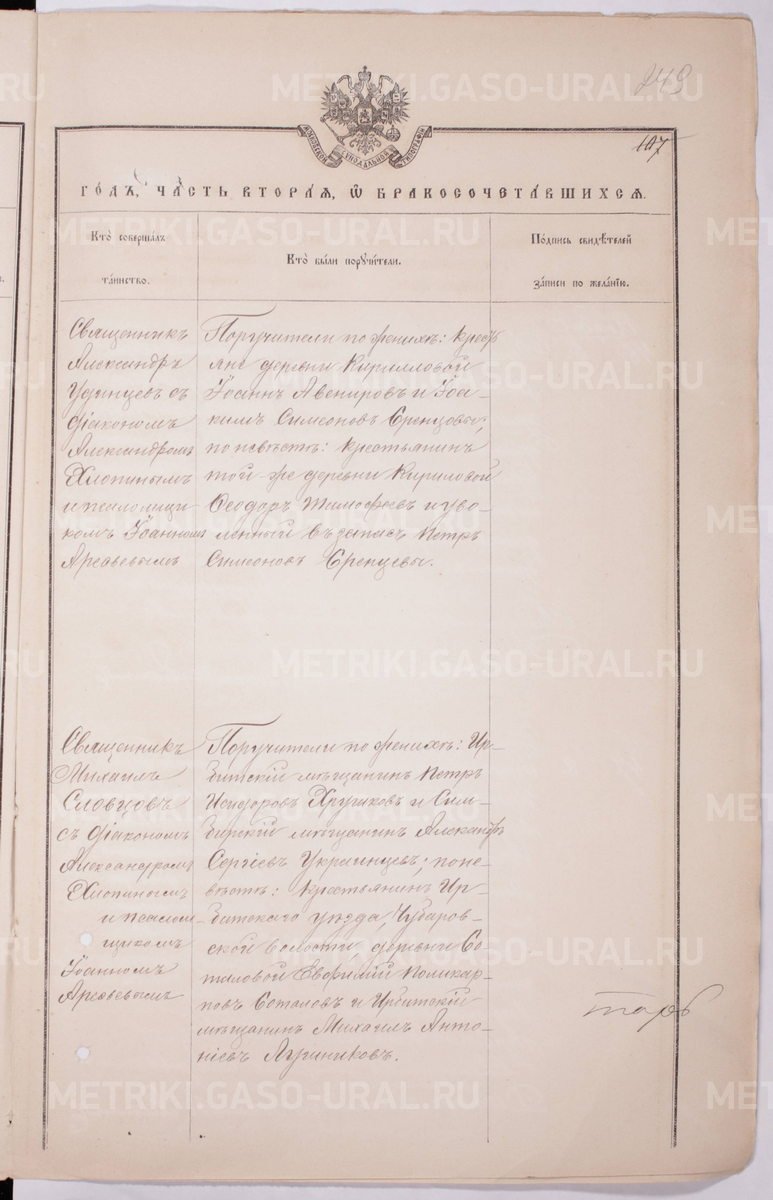 249
107
МОСКОВСКОЙ СѴНОДАЛЬНОЙ ТИПОГРАФІИ
ГО́ДЪ, ЧА́СТЬ ВТОРА́Я, Ѡ҆ БРАКОСОЧЕТА́ВШИХСЯ.
Кто̀ соверша́лъ
та́инство.
Кто̀ бы́ли порꙋчи́тели.
По́дпись свидѣ́телей
за́писи по жела́нїю.
Священникъ
Александръ
Удинцевъ съ
діакономъ
Александромъ
Хлопинымъ
и псаломщи-
комъ Іоанномъ
Арефьевымъ
Поручители по женихѣ: кресть
яне деревни Кирилловой
Іоаннъ Авенировъ и Іоа-
кимъ Симеоновъ Еренцовы;
по невѣстѣ: крестьянинъ
той-же деревни Кириловой
Ѳеодоръ Тимофѣевъ и уво-
ленный въ запасъ Петръ
Симеоновъ Еренцевы.
Священникъ
Михаилъ
Словцовъ
съ діакономъ
Александромъ
Хлопинымъ
и псалом-
щикомъ
Іоанномъ
Арефьевымъ
Поручители по женихѣ: Ир-
битскій мѣщанинъ Петръ
Исидоровъ и Сим-
бирскій мѣщанинъ Александръ
Сергіевъ Украинцевъ; по не-
вѣстѣ: крестьянинъ Ир-
битскаго уѣзда, Чубаров-
ской волости, деревни Со-
таловой Евфимій Поликар-
повъ Соталовъ и Ирбитскій
мѣщанинъ Михаилъ Анто-
ніевъ Лушниковъ.
тарь
METRIKI.GASO-URAL.RU